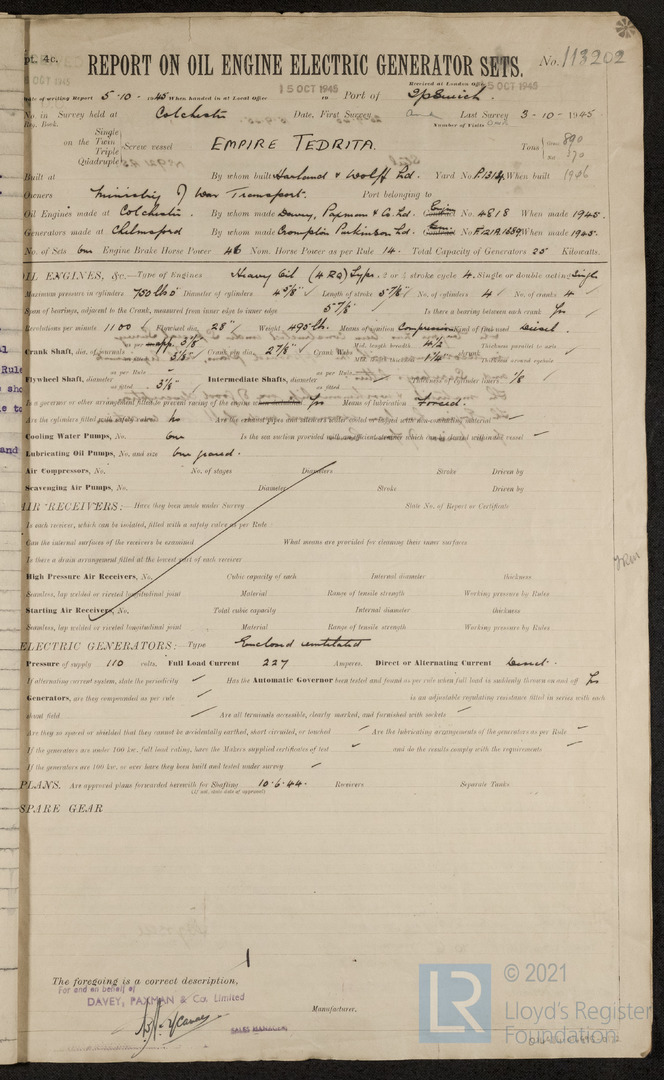 pt. 4c.
REPORT ON OIL ENGINE ELECTRIC GENERATOR SETS. No. 113202
OCT 1945
15 OCT 1945
Received at London Office 5 OCT 1945
Date of writing Report 5-10-1945 When handed in at Local Office 19 Port of Ipswich.
No. in Survey held at Colchester Date, First Survey Last Survey 3-10-1945
Reg. Book. Number of Visits One
Single
on the Twin
Triple
Quadruple
Screw vessel EMPIRE TEDRITA. Tons Gross 890
Net 370
Built at By whom built Harland & Wolff Ld. Yard No. P1314 When built 1946
Owners Ministry of War Transport. Port belonging to
Oil Engines made at Colchester. By whom made Davey, Paxman & Co. Ld. Engine No. 4818 When made 1945.
Generators made at Chelmsford By whom made Crompton Parkinson Ld. No. When made 1945.
No. of Sets One Engine Brake Horse Power 46 Nom. Horse Power as per Rule 14. Total Capacity of Generators 25 Kilowatts.
OIL ENGINES, &c.—Type of Engines Heavy Oil (4 RQ) Type. 2 or 4 stroke cycle 4. Single or double acting Single
Maximum pressure in cylinders 750 lbs Diameter of cylinders 4 5/8" Length of stroke 5 7/8" No. of cylinders 4 No. of cranks 4
Span of bearings, adjacent to the Crank, measured from inner edge to inner edge 5 7/8 Is there a bearing between each crank Yes
Revolutions per minute 1100 Flywheel dia. 28" Weight 495 lbs. Means of ignition Compression Kind of fuel used Diesel.
Crank Shaft, dia. of journals as per Rule app. 3 1/8 as fitted 3 1/8" Crank pin dia. 2 7/8" Crank Webs Mid. length breadth 4 1/2 Thickness parallel to axis
Mid. length thickness 1 1/4 shrunk Thickness around eyehole
Flywheel Shaft, diameter as per Rule as fitted 3 1/8" Intermediate Shafts, diameter as per Rule as fitted Thickness of cylinder liners 1/8
Is a governor or other arrangement fitted to prevent racing of the engine Yes Means of lubrication Forced.
Are the cylinders fitted with safety valves No Are the exhaust pipes and silencers water cooled or lagged with non-conducting material
Cooling Water Pumps, No. One Is the sea suction provided with an efficient strainer which can be cleared within the vessel
Lubricating Oil Pumps, No. and size One geared.
Air Compressors, No. No. of stages Diameters Stroke Driven by
Scavenging Air Pumps, No. Diameter Stroke Driven by
AIR RECEIVERS:—Have they been made under Survey State No. of Report or Certificate
Is each receiver, which can be isolated, fitted with a safety valve as per Rule
Can the internal surfaces of the receivers be examined What means are provided for cleaning their inner surfaces
Is there a drain arrangement fitted at the lowest part of each receiver
High Pressure Air Receivers, No. Cubic capacity of each Internal diameter thickness
Seamless, lap welded or riveted longitudinal joint Material Range of tensile strength Working pressure by Rules
Starting Air Receivers, No. Total cubic capacity Internal diameter thickness
Seamless, lap welded or riveted longitudinal joint Material Range of tensile strength Working pressure by Rules
ELECTRIC GENERATORS:—Type Enclosed ventilated
Pressure of supply 110 volts. Full Load Current 227 Amperes. Direct or Alternating Current
If alternating current system, state the periodicity Has the Automatic Governor been tested and found as per rule when full load is suddenly thrown on and off Yes
Generators, are they compounded as per rule is an adjustable regulating resistance fitted in series with each
shunt field Are all terminals accessible, clearly marked, and furnished with sockets
Are they so spaced or shielded that they cannot be accidentally earthed, short circuited, or touched Are the lubricating arrangements of the generators as per Rule
If the generators are under 100 kw. full load rating, have the Makers supplied certificates of test and do the results comply with the requirements
If the generators are 100 kw. or over have they been built and tested under survey
PLANS. Are approved plans forwarded herewith for Shafting 10-6-44. Receivers Separate Tanks
(If not, state date of approval)
SPARE GEAR
The foregoing is a correct description,
For and on behalf of
DAVEY, PAXMAN & Co. Limited
Manufacturer.
SALES MANAGER.
LR
© 2021
Lloyd's Register
Foundation